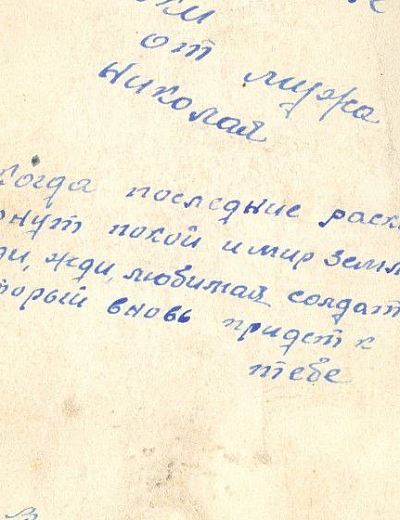 от мужа
Николая
Когда последние раск
рнут покой и мир земл
ди, жди, любимая, солдат
торый вновь придет к
тебе